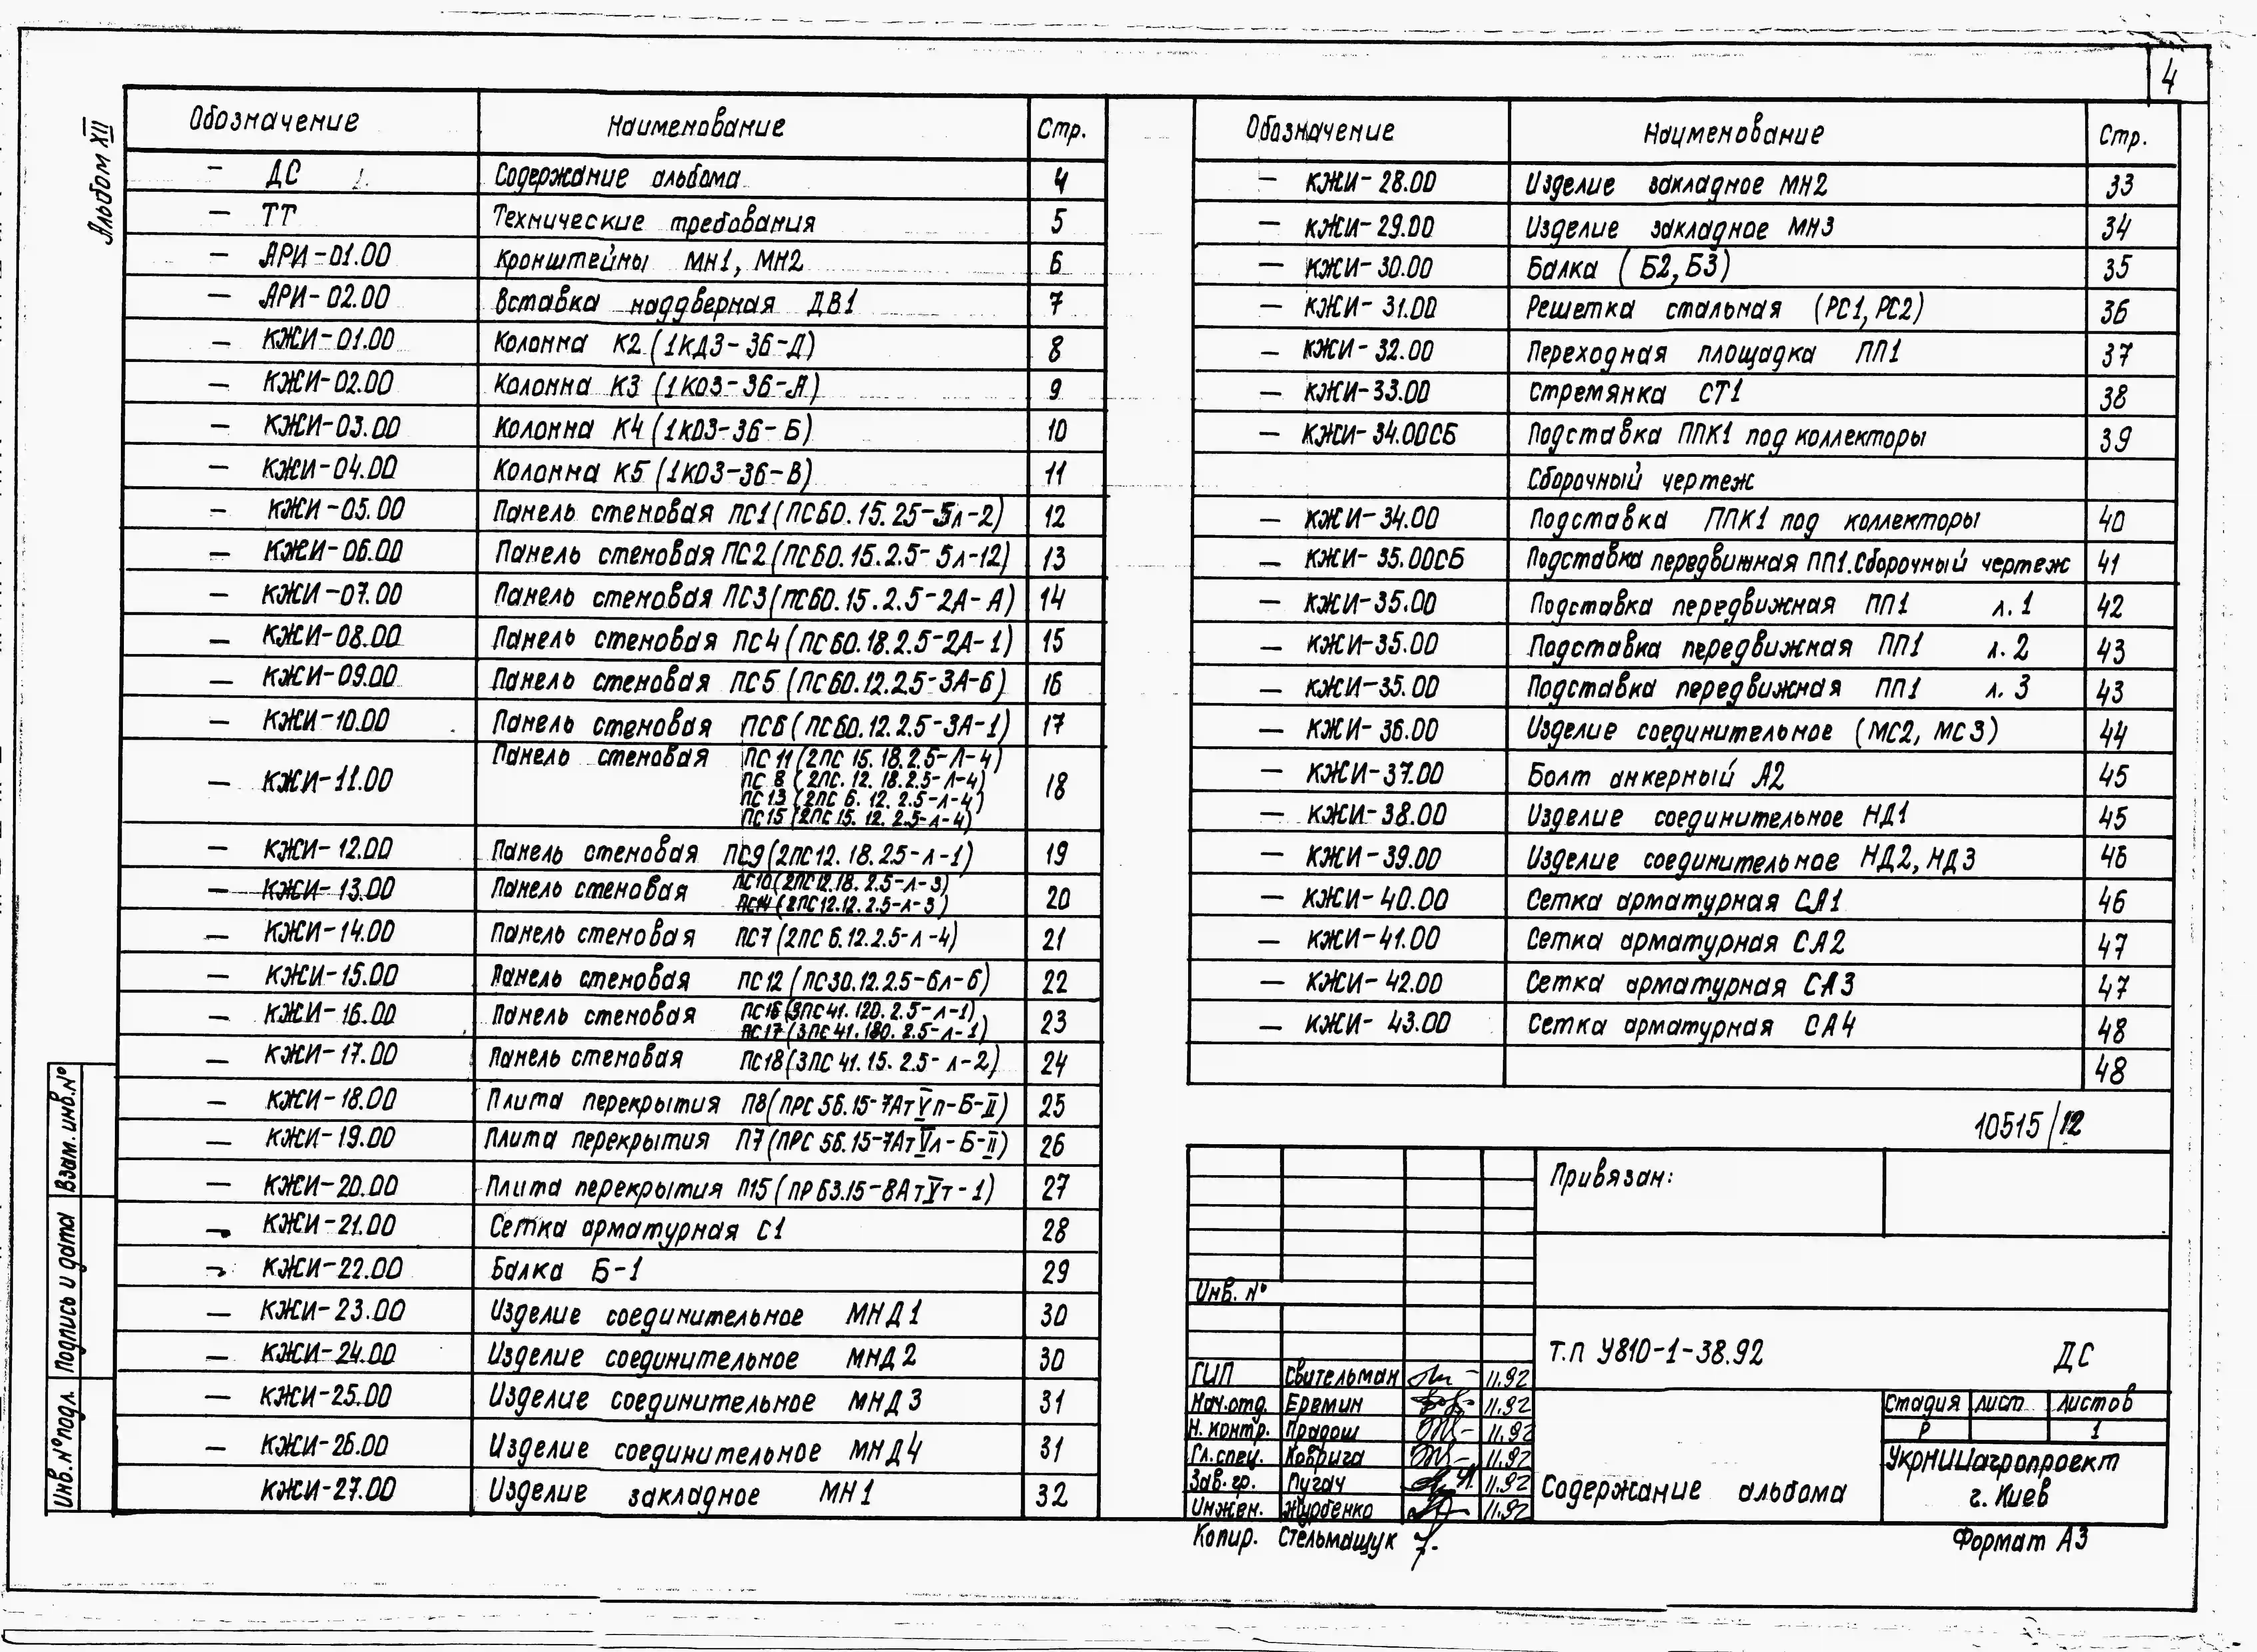 4
Альбом XII
Обозначение Наименование Стр.
– ДС Содержание альбома 4
– ТТ Технические требования 5
– АРИ-01.00 Кронштейны МН1, МН2 6
– АРИ-02.00 Вставка наддверная ДВ1 7
– КЖИ-01.00 Колонна К2 (1КД3-36-Д) 8
– КЖИ-02.00 Колонна К3 (1К03-36-А) 9
– КЖИ-03.00 Колонна К4 (1К03-36-Б) 10
– КЖИ-04.00 Колонна К5 (1К03-36-В) 11
– КЖИ-05.00 Панель стеновая ПС1 (ПС60.15.25-5л-2) 12
– КЖИ-06.00 Панель стеновая ПС2 (ПС60.15.2.5-5л-12) 13
– КЖИ-07.00 Панель стеновая ПС3 (ПС60.15.2.5-2А-А) 14
– КЖИ-08.00 Панель стеновая ПС4 (ПС60.18.2.5-2А-1) 15
– КЖИ-09.00 Панель стеновая ПС5 (ПС60.12.2.5-3А-6) 16
– КЖИ-10.00 Панель стеновая ПС6 (ПС60.12.2.5-3А-1) 17
– КЖИ-11.00 Панель стеновая ПС11 (2ПС 15.18.2.5-Л-4) 18
ПС 8 (2ПС.12.18.2.5-Л-4)
ПС13 (2ПС 6.12.2.5-л-4)
ПС15 (2ПС 15.12.2.5-л-4)
– КЖИ-12.00 Панель стеновая ПС9 (2ПС12.18.25-л-1) 19
– КЖИ-13.00 Панель стеновая ПС10 (2ПС12.18.2.5-л-3) 20
ПС14 (2ПС12.12.2.5-л-3)
– КЖИ-14.00 Панель стеновая ПС7 (2ПС 6.12.2.5-л-4) 21
– КЖИ-15.00 Панель стеновая ПС12 (ПС30.12.2.5-6л-6) 22
– КЖИ-16.00 Панель стеновая ПС16 (3ПС41.120.2.5-л-1) 23
ПС17 (3ПС41.180.2.5-л-1)
– КЖИ-17.00 Панель стеновая ПС18 (3ПС 41.15.2.5-л-2) 24
– КЖИ-18.00 Плита перекрытия П8 (ПРС 56.15-7АтVп-Б-II) 25
– КЖИ-19.00 Плита перекрытия П7 (ПРС 56.15-7АтVл-Б-II) 26
– КЖИ-20.00 Плита перекрытия П15 (ПР63.15-8АтVт-1) 27
– КЖИ-21.00 Сетка арматурная С1 28
– КЖИ-22.00 Балка Б-1 29
– КЖИ-23.00 Изделие соединительное МНД1 30
– КЖИ-24.00 Изделие соединительное МНД2 30
– КЖИ-25.00 Изделие соединительное МНД3 31
– КЖИ-26.00 Изделие соединительное МНД4 31
КЖИ-27.00 Изделие закладное МН1 32
Обозначение Наименование Стр.
– КЖИ-28.00 Изделие закладное МН2 33
– КЖИ-29.00 Изделие закладное МН3 34
– КЖИ-30.00 Балка (Б2, Б3) 35
– КЖИ-31.00 Решетка стальная (РС1, РС2) 36
– КЖИ-32.00 Переходная площадка ПП1 37
– КЖИ-33.00 Стремянка СТ1 38
– КЖИ-34.00СБ Подставка ППК1 под коллекторы 39
Сборочный чертеж
– КЖИ-34.00 Подставка ППК1 под коллекторы 40
– КЖИ-35.00СБ Подставка передвижная ПП1. Сборочный чертеж 41
– КЖИ-35.00 Подставка передвижная ПП1 л.1 42
– КЖИ-35.00 Подставка передвижная ПП1 л.2 43
– КЖИ-35.00 Подставка передвижная ПП1 л.3 43
– КЖИ-36.00 Изделие соединительное (МС2, МС3) 44
– КЖИ-37.00 Болт анкерный А2 45
– КЖИ-38.00 Изделие соединительное НД1 45
– КЖИ-39.00 Изделие соединительное НД2, НД3 46
– КЖИ-40.00 Сетка арматурная СА1 46
– КЖИ-41.00 Сетка арматурная СА2 47
– КЖИ-42.00 Сетка арматурная СА3 47
– КЖИ-43.00 Сетка арматурная СА4 48
48
10515/12
Привязан:
Инв. №
Т.П У810-1-38.92 ДС
ГИП Свительман 11.92
Нач.отд. Еремин 11.92
Н. контр. Прадош 11.92
Гл.спец. Коврига 11.92
Зав.гр. Пугач 11.92
Инжен. Журбенко 11.92
Содержание альбома
Стадия Лист Листов
Р 1
УкрНИИагропроект
г. Киев
Копир. Стельмащук
Формат А3
Взам. инв. №
Подпись и дата
Инв. № подл.